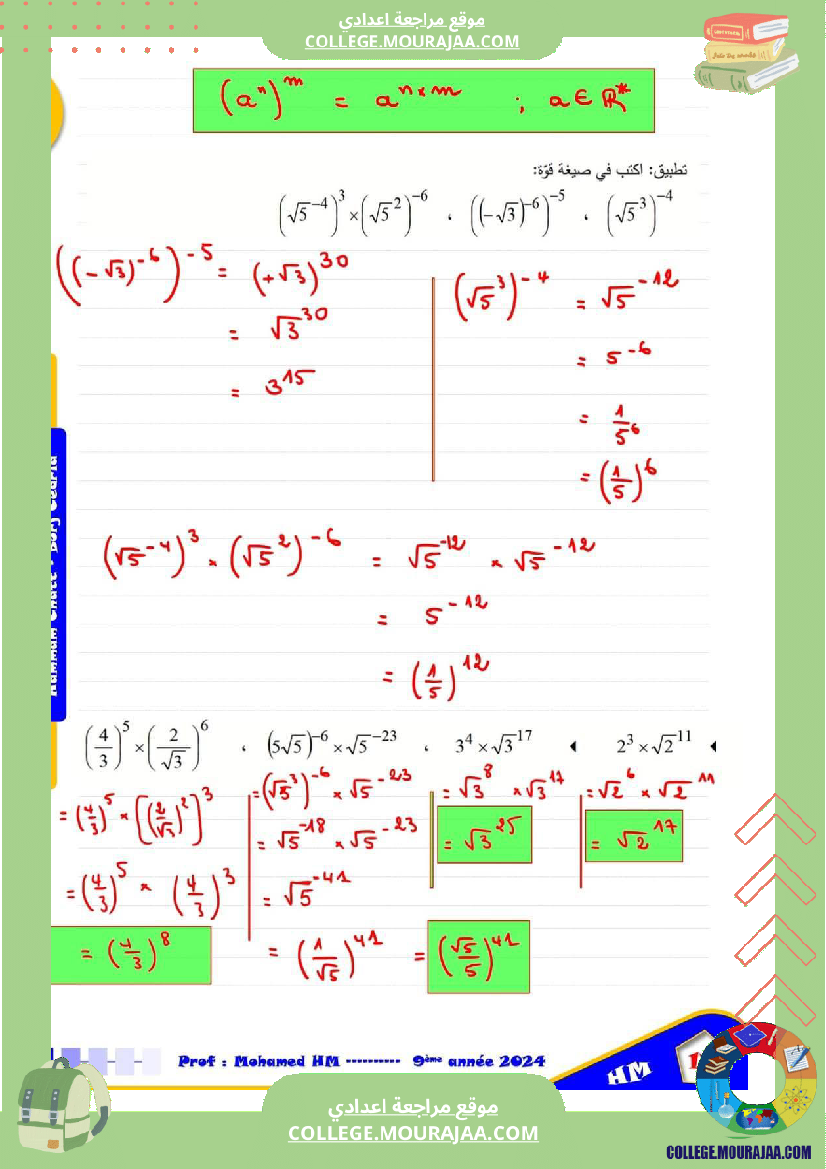 موقع مراجعة اعدادي
COLLEGE.MOURAJAA.COM
(aⁿ)ᵐ = aⁿˣᵐ ; a ∈ ℝ*
تطبيق: اكتب في صيغة قوّة:
(√5⁻⁴)³ × (√5²)⁻⁶ ، ((-√3)⁻⁶)⁻⁵ ، (√5³)⁻⁴
((-√3)⁻⁶)⁻⁵ = (+√3)³⁰
= √3³⁰
= 3¹⁵
(√5³)⁻⁴ = √5⁻¹²
= 5⁻⁶
= 1/5⁶
= (1/5)⁶
(√5⁻⁴)³ × (√5²)⁻⁶ = √5⁻¹² × √5⁻¹²
= 5⁻¹²
= (1/5)¹²
(4/3)⁵ × (2/√3)⁶ ، (5√5)⁻⁶ × √5⁻²³ ، 3⁴ × √3¹⁷ ، 2³ × √2¹¹
= (4/3)⁵ × [(2/√3)²]³
= (4/3)⁵ × (4/3)³
= (4/3)⁸
= (√5³)⁻⁶ × √5⁻²³
= √5⁻¹⁸ × √5⁻²³
= √5⁻⁴¹
= (1/√5)⁴¹ = (√5/5)⁴¹
= √3⁸ × √3¹⁷
= √3²⁵
= √2⁶ × √2¹¹
= √2¹⁷
Prof : Mohamed HM ---------- 9ème année 2024
HM
موقع مراجعة اعدادي
COLLEGE.MOURAJAA.COM
COLLEGE.MOURAJAA.COM